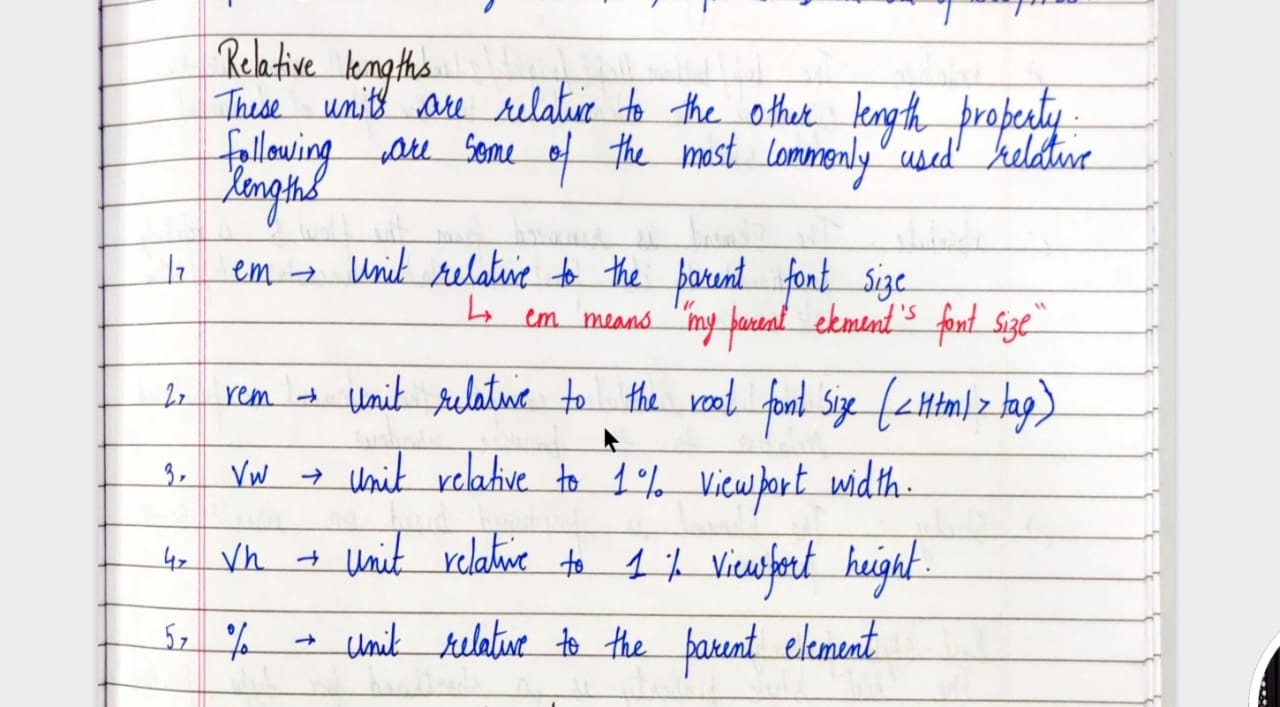 Relative lengths
These units are relative to the other length property.
following are some of the most commonly used relative
lengths
1> em → Unit relative to the parent font size
↳ em means "my parent element's font size"
2> rem → Unit relative to the root font size (<Html> tag)
3. Vw → Unit relative to 1% viewport width.
4> Vh → Unit relative to 1% viewport height.
5> % → Unit relative to the parent element